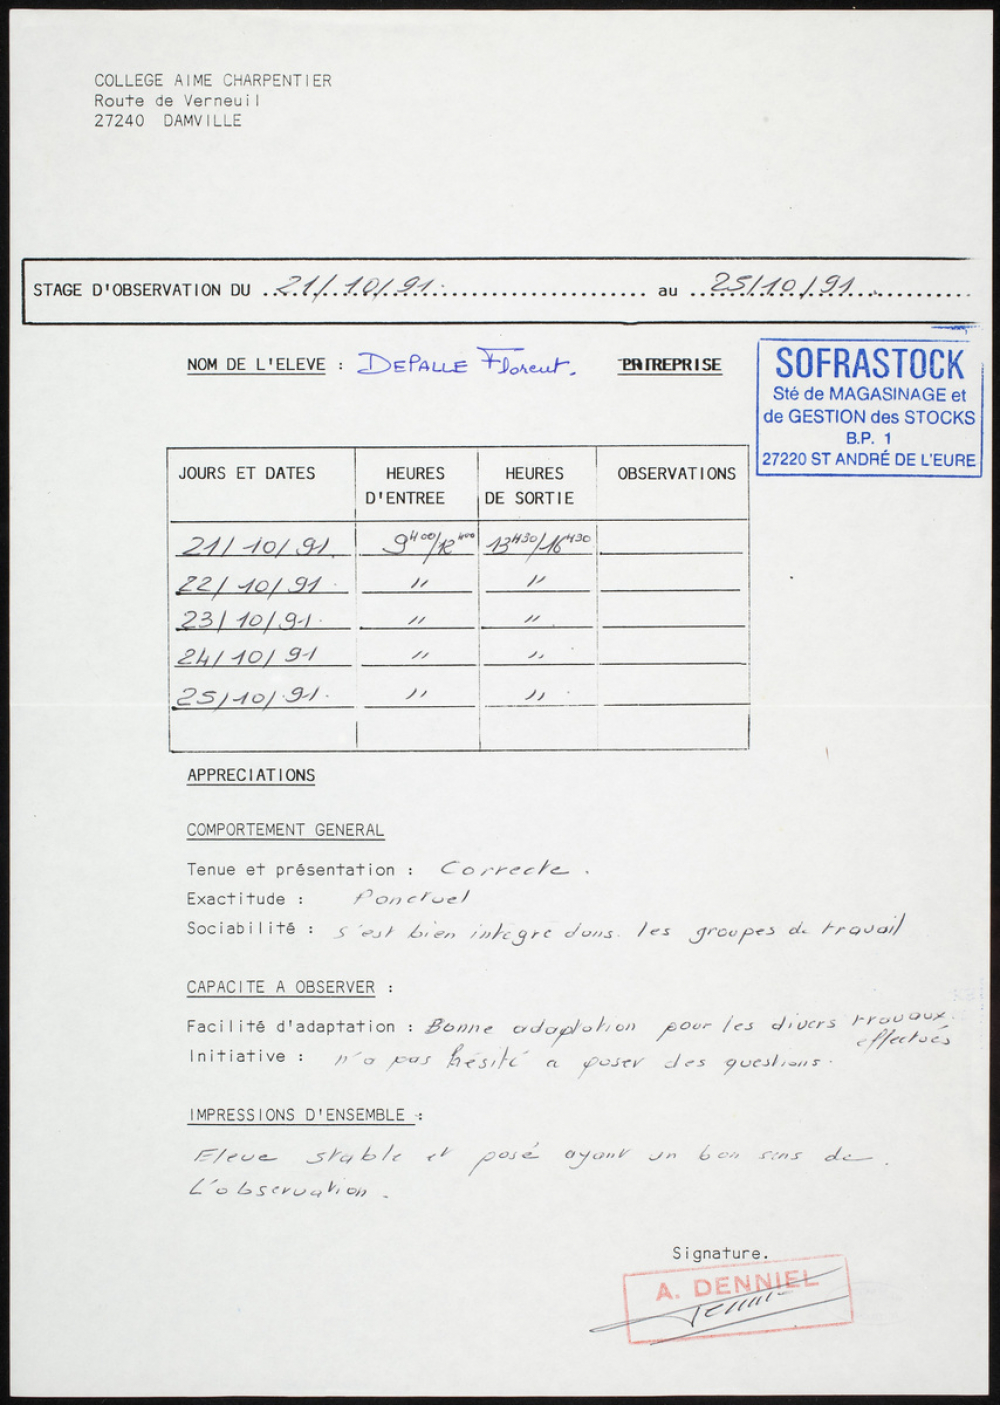 COLLEGE AIME CHARPENTIER
Route de Verneuil
27240 DAMVILLE
STAGE D'OBSERVATION DU ..21/.10/.91................... au ..25/10/91...........
NOM DE L'ELEVE : DEPALLE Florent. ENTREPRISE
SOFRASTOCK
Sté de MAGASINAGE et
de GESTION des STOCKS
B.P. 1
27220 ST ANDRÉ DE L'EURE
JOURS ET DATES HEURES D'ENTREE HEURES DE SORTIE OBSERVATIONS
21/10/91. 9H00/12H00 13H30/16H30
22/10/91. " "
23/10/91. " "
24/10/91 " "
25/10/91. " "
APPRECIATIONS
COMPORTEMENT GENERAL
Tenue et présentation : Correcte.
Exactitude : Ponctuel
Sociabilité : s'est bien intégré dans les groupes de travail
CAPACITE A OBSERVER :
Facilité d'adaptation : Bonne adaptation pour les divers travaux
effectués
Initiative : n'a pas hésité a poser des questions.
IMPRESSIONS D'ENSEMBLE :
Eleve stable et posé ayant un bon sens de
L'observation.
Signature.
A. DENNIEL